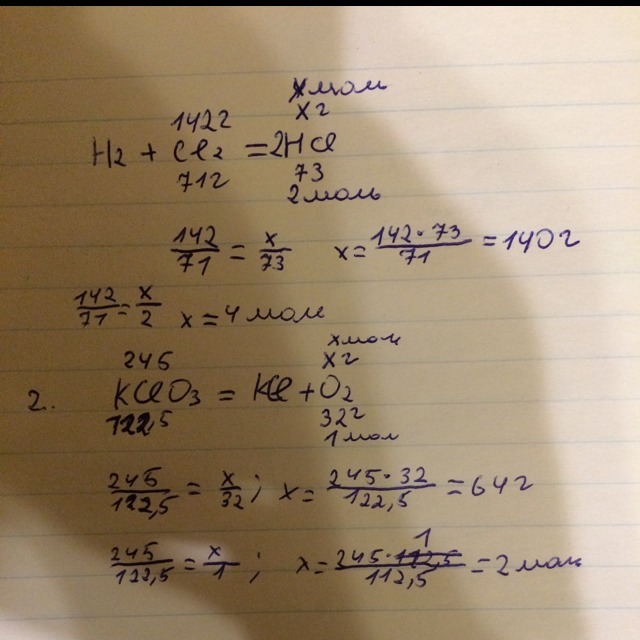 x мол
x г
142 г
H2 + Cl2 = 2HCl
71 г 73
2 моль
142/71 = x/73 x = 142·73/71 = 140 г
142/71 = x/2 x = 4 мол
x мол
245 x г
2. KClO3 = KCl + O2
122,5 32 г
1 мол
245/122,5 = x/32; x = 245·32/122,5 = 64 г
245/122,5 = x/1; x = 245·1/112,5 = 2 мол